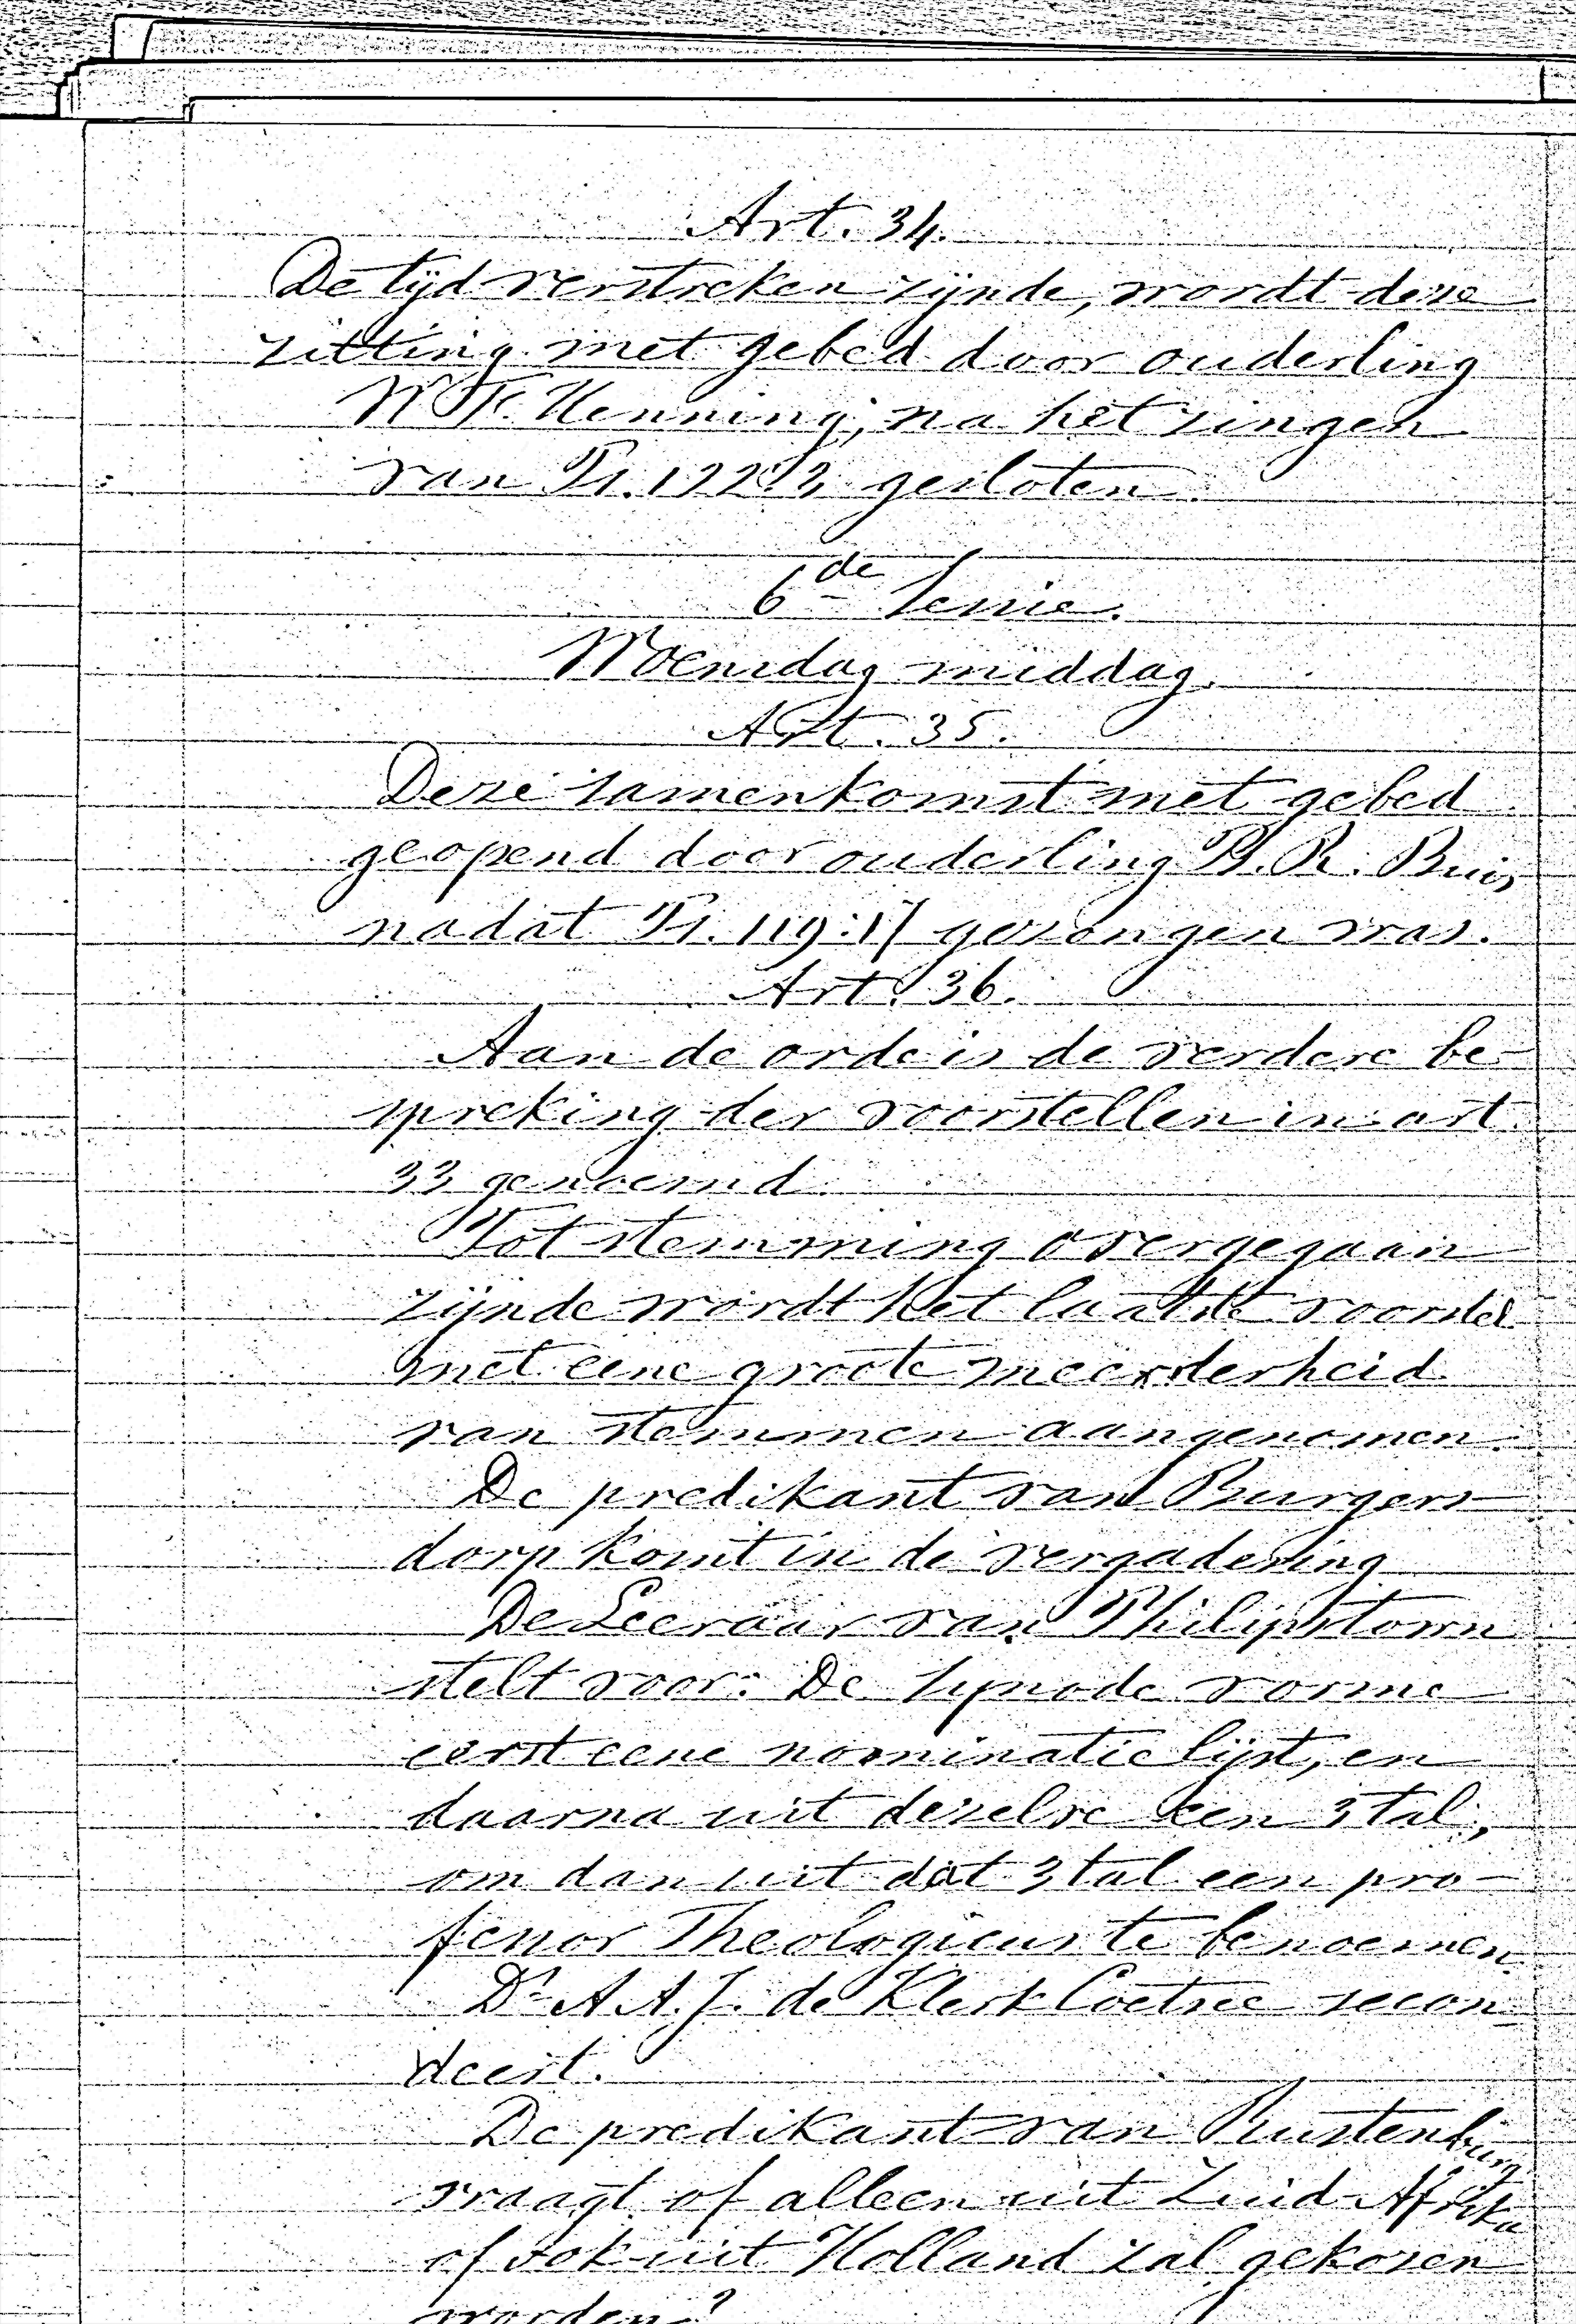 Art. 34.
De tijd verstreken zijnde, wordt deze
zitting met gebed door ouderling
W. F. Henning, na het zingen
van Ps. 122:3 gesloten.
6de Sessie.
Woensdag middag.
Art. 35.
Deze samenkomst met gebed
geopend door ouderling P. R. Buis,
nadat Ps. 119:17 gezongen was.
Art. 36.
Aan de orde is de verdere be-
spreking der voorstellen in art.
33 genoemd.
Tot stemming overgegaan
zijnde wordt het laatste voorstel
met eene groote meerderheid
van stemmen aangenomen.
De predikant van Burgers-
dorp komt in de vergadering
De Leeraar van Philipstown
stelt voor: De Synode vorme
eerst eene nominatie lijst, en
daarna uit dezelve een 3tal,
om dan uit dat 3tal een pro-
fessor Theologicus te benoemen.
Ds A. A. J. de Klerk Coetsee secon-
deert.
De predikant van Rustenburg
vraagt of alleen uit Zuid-Afrika
of ook uit Holland zal gekozen
worden?